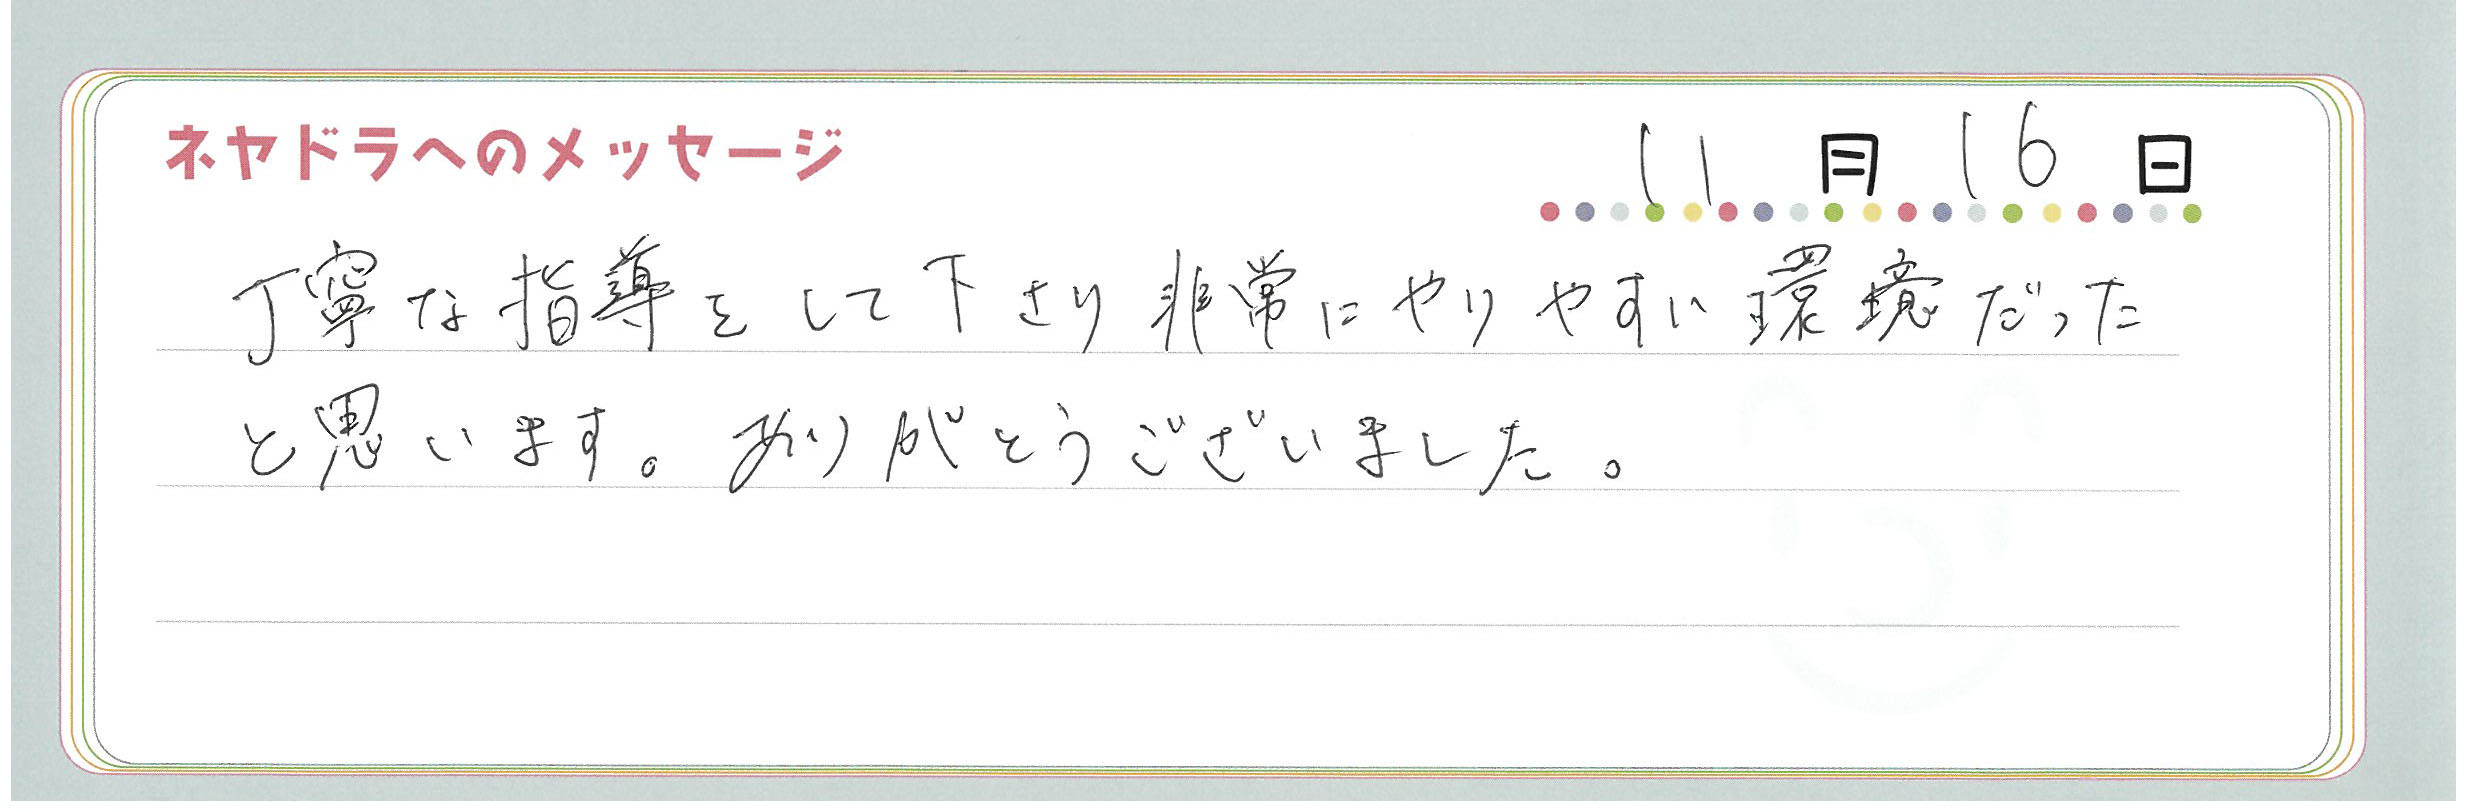 ネヤドラへのメッセージ
11月16日
丁寧な指導をして下さり非常にやりやすい環境だった
と思います。ありがとうございました。